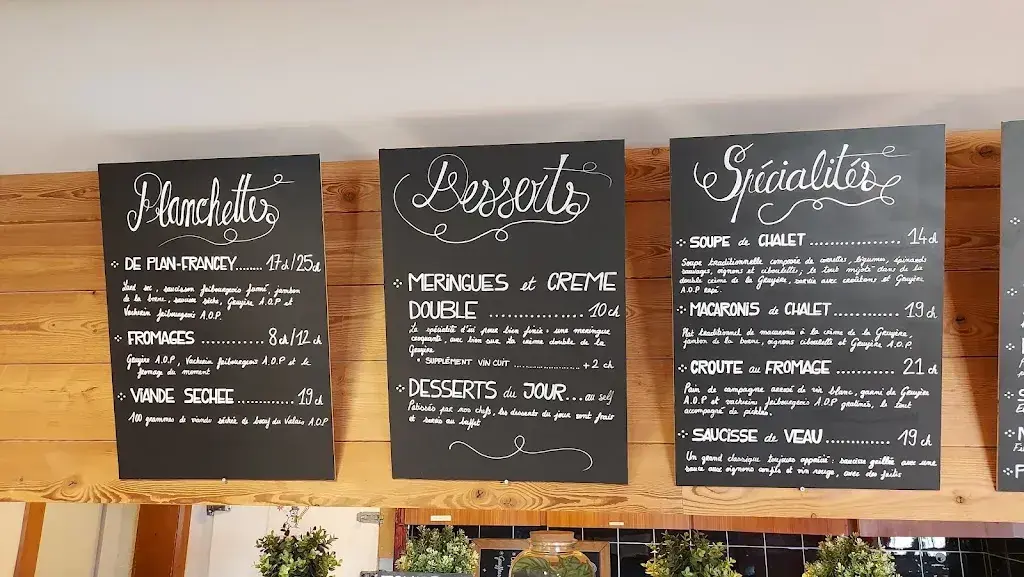 Planchettes
DE PLAN-FRANCEY........ 17ch/25ch
Lard sec, saucisson fribourgeois fumé, jambon
de la borne, saucisse sèche, Gruyère A.O.P et
Vacherin fribourgeois A.O.P.
FROMAGES ............ 8ch/12ch
Gruyère A.O.P, Vacherin fribourgeois A.O.P et le
fromage du moment
VIANDE SECHEE ............ 19ch
100 grammes de viande séchée de bœuf du Valais A.O.P
Desserts
MERINGUES et CREME
DOUBLE .................. 10ch
La spécialité d'ici pour bien finir : une meringue
croquante avec bien sur la crème double de la
Gruyère
• SUPPLÉMENT VIN CUIT .................. +2 ch
DESSERTS du JOUR... au self
Patissés par nos chefs, les desserts du jour sont frait
et servis au buffet
Spécialités
SOUPE de CHALET .................. 14ch
Soupe traditionnelle composée de cornettes, légumes, épinards
sauvages, oignons et ciboulette, le tout mijoté dans de la
double crème de la Gruyère, servie avec croûtons et Gruyère
A.O.P rapé.
MACARONIS de CHALET .......... 19ch
Plat traditionnel de macaronis à la crème de la Gruyère,
jambon de la borne, oignons ciboulette et Gruyère A.O.P.
CROUTE au FROMAGE ............ 21 ch
Pain de campagne arrosé de vin blanc, garni de Gruyère
A.O.P et vacherin fribourgeois A.O.P gratinés, le tout
accompagné de pickles.
SAUCISSE de VEAU ............ 19 ch
Un grand classique toujours apprécié : saucisse grillée avec une
sauce aux oignons confits et vin rouge, avec des frites